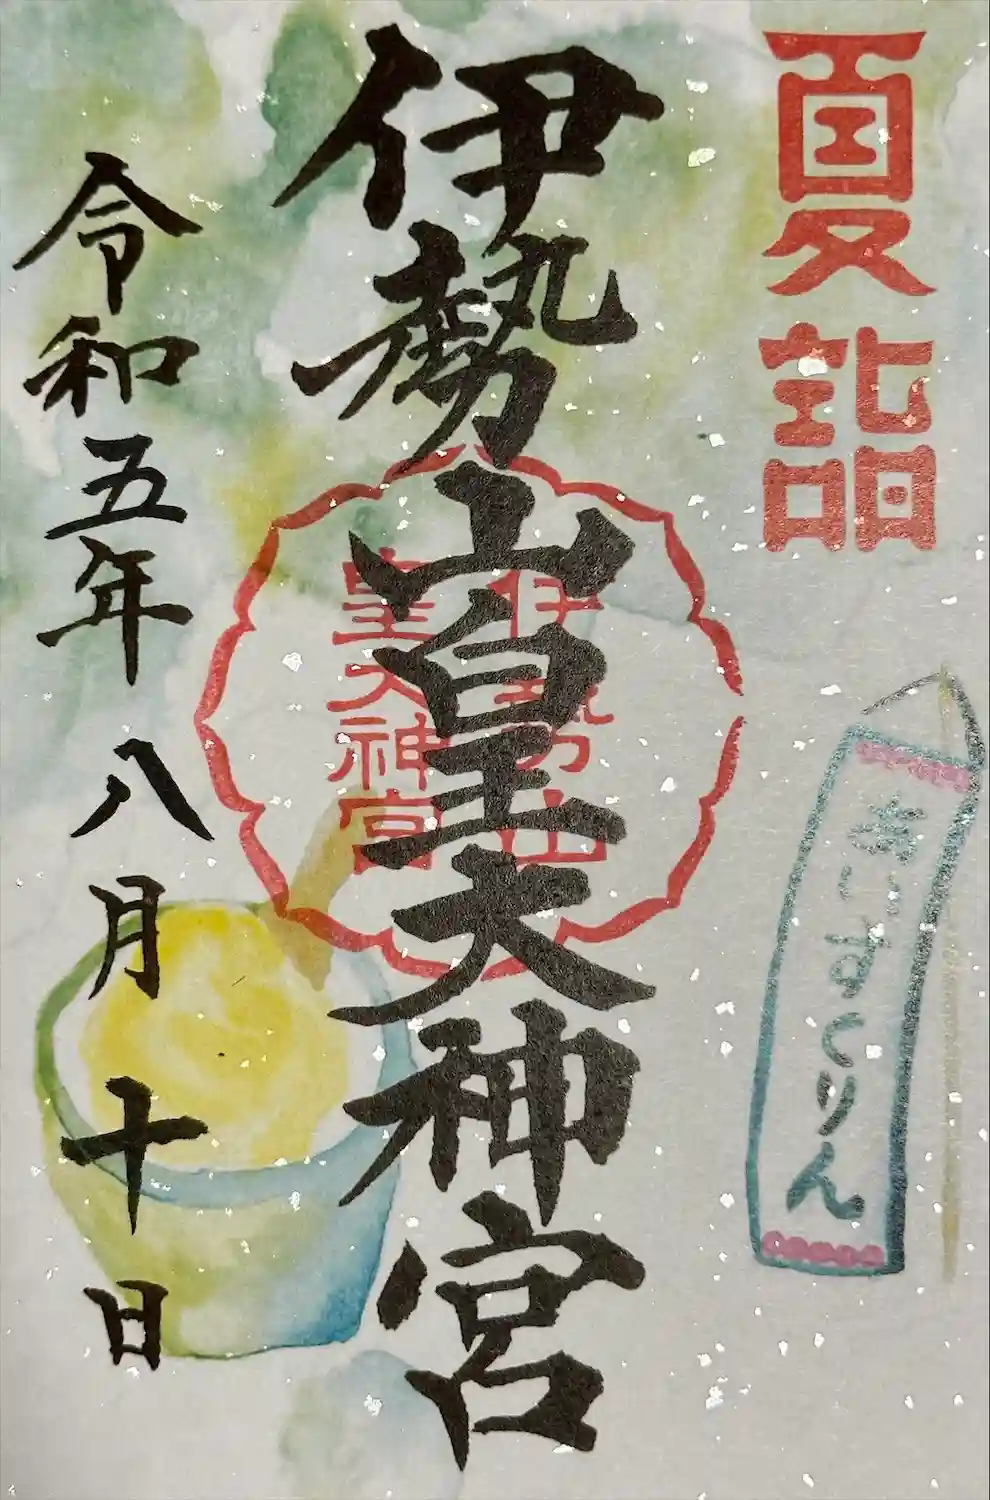 夏詣
あいすくりん
伊勢山皇大神宮
伊勢山
皇大神宮
令和五年八月十日